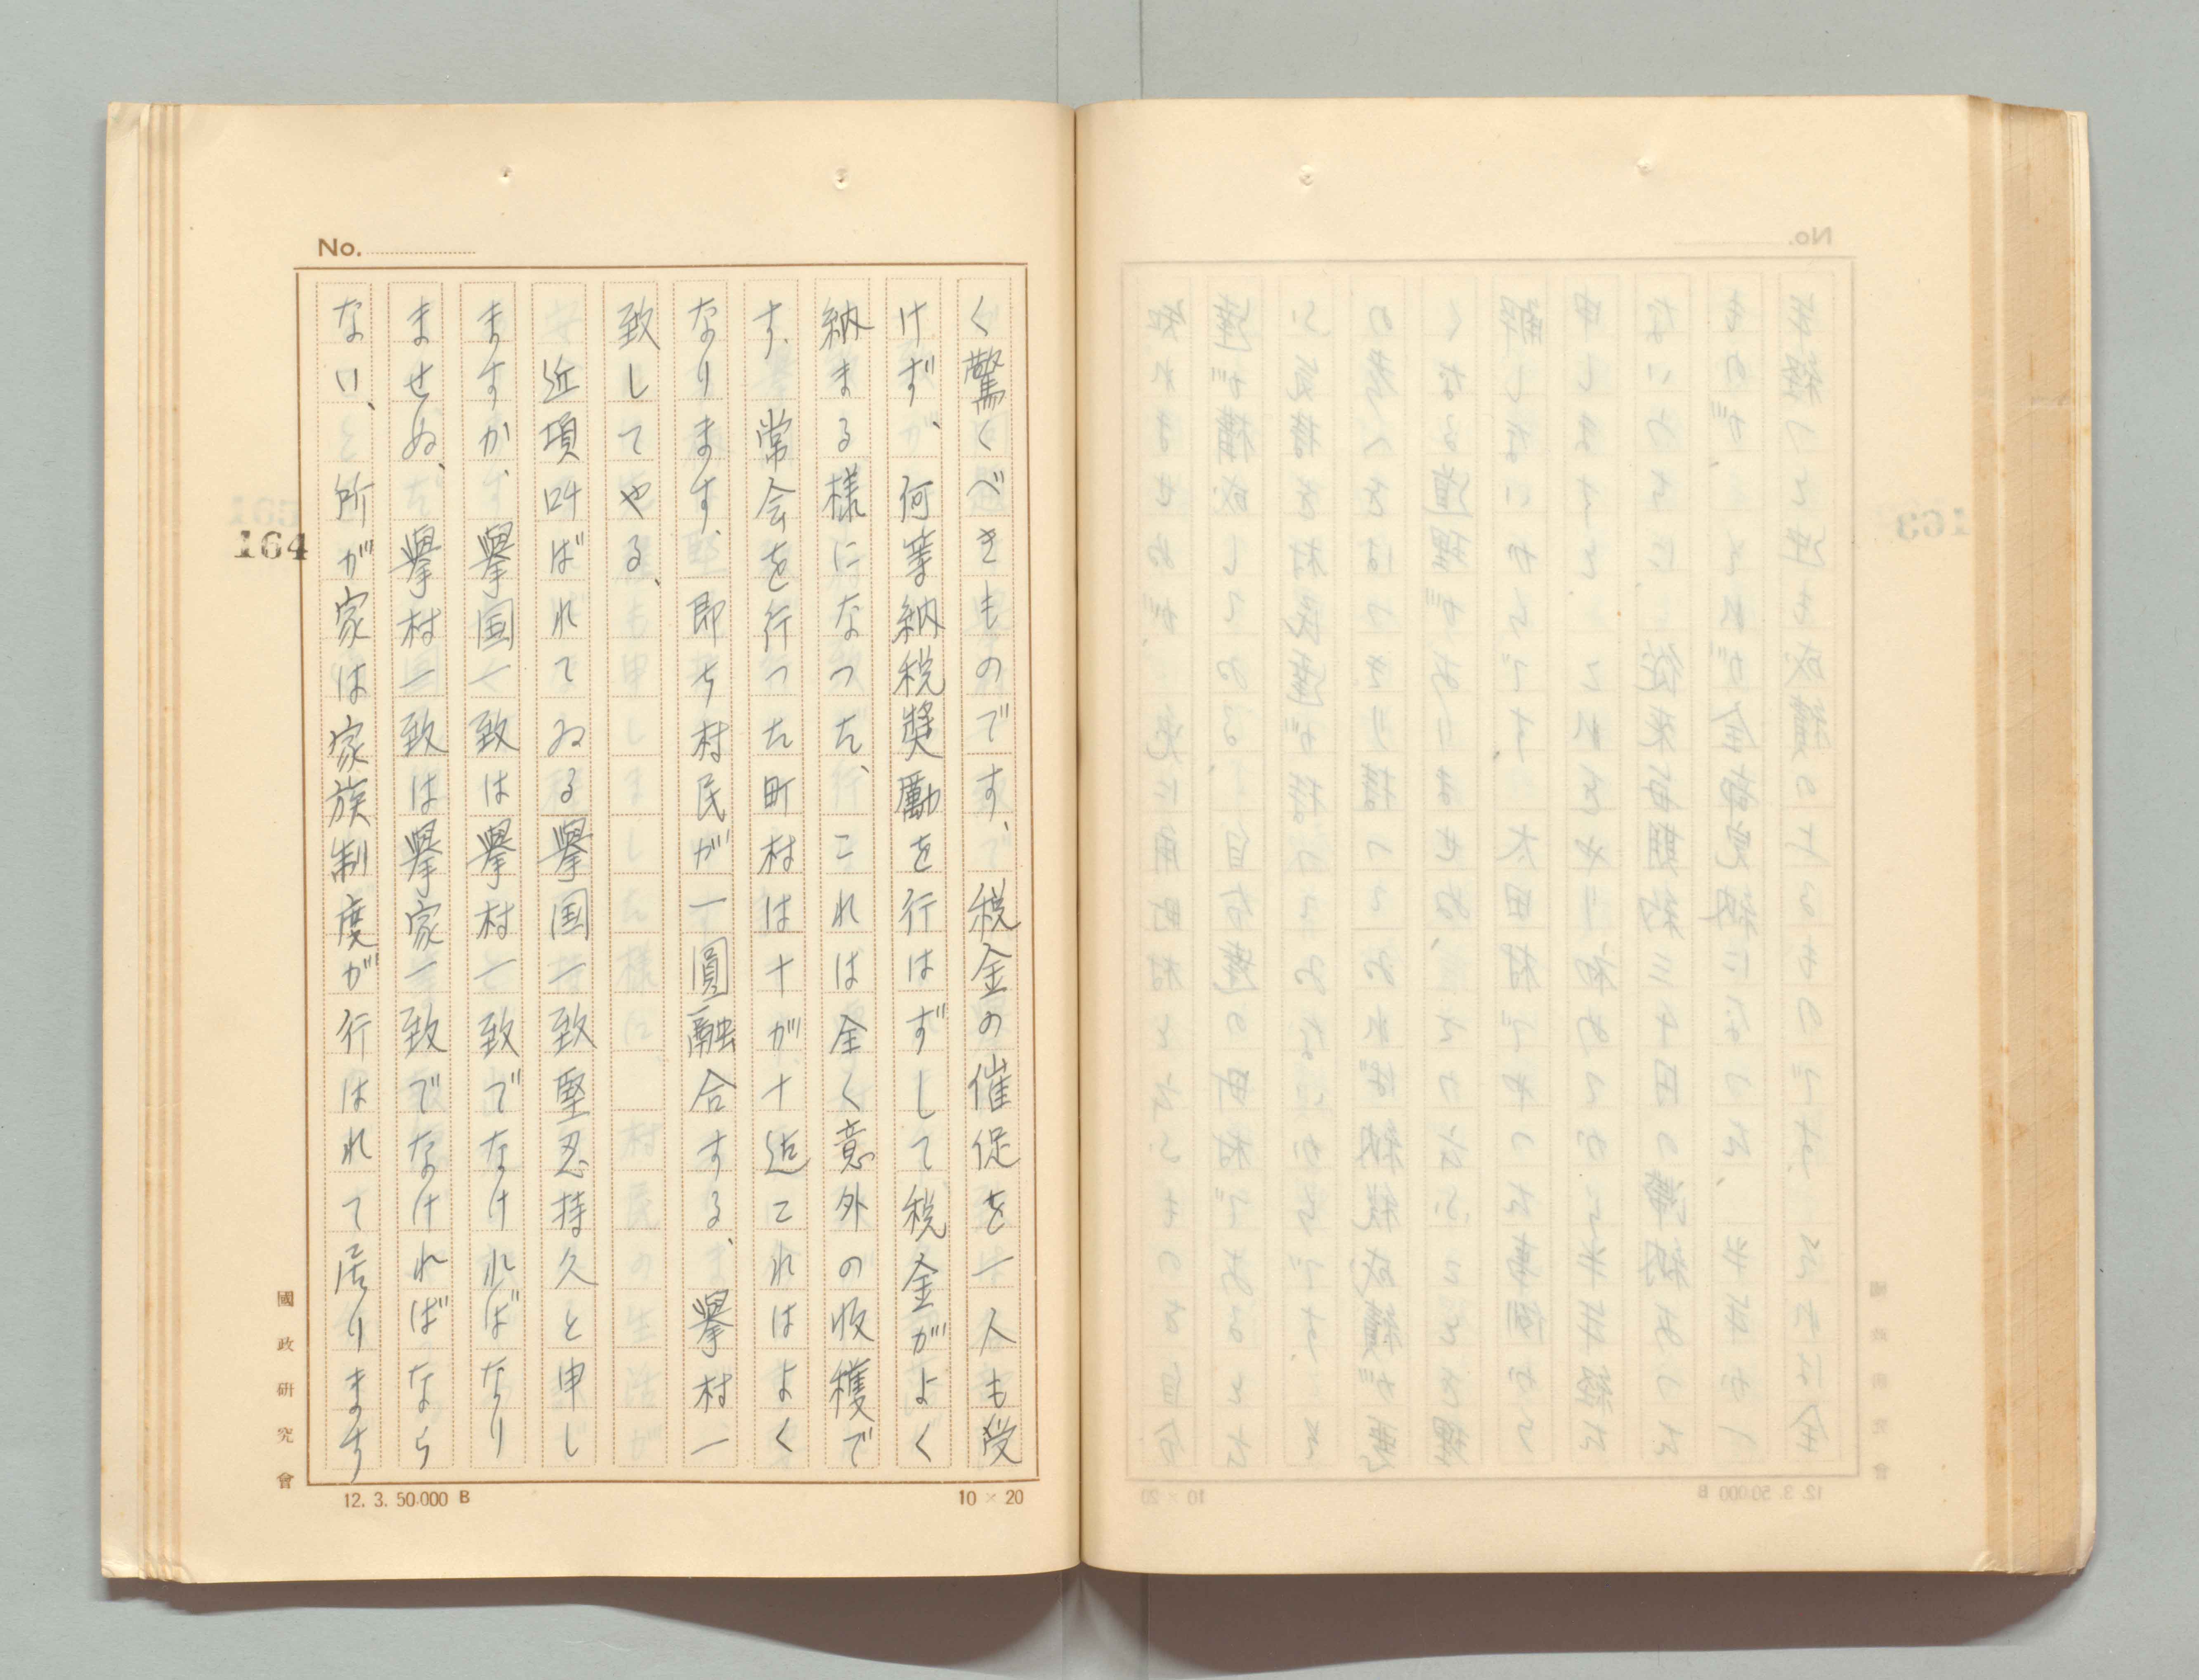 No.
く驚くべきものです、税金の催促を一人も受
けず、何等納税奬勵を行はずして税金がよく
納まる様になつた、これは全く意外の收穫で
す、常会を行つた町村は十が十迠これはよく
なります、即ち村民が一圓融合する、擧村一
致してやる、
近頃叫ばれてゐる擧国一致堅忍持久と申し
ますか、擧国一致は擧村一致でなければなり
ませぬ、擧村一致は擧家一致でなければなら
ない、所が家は家族制度が行はれて居ります
164
國政研究會
12. 3. 50.000 B
10 × 20